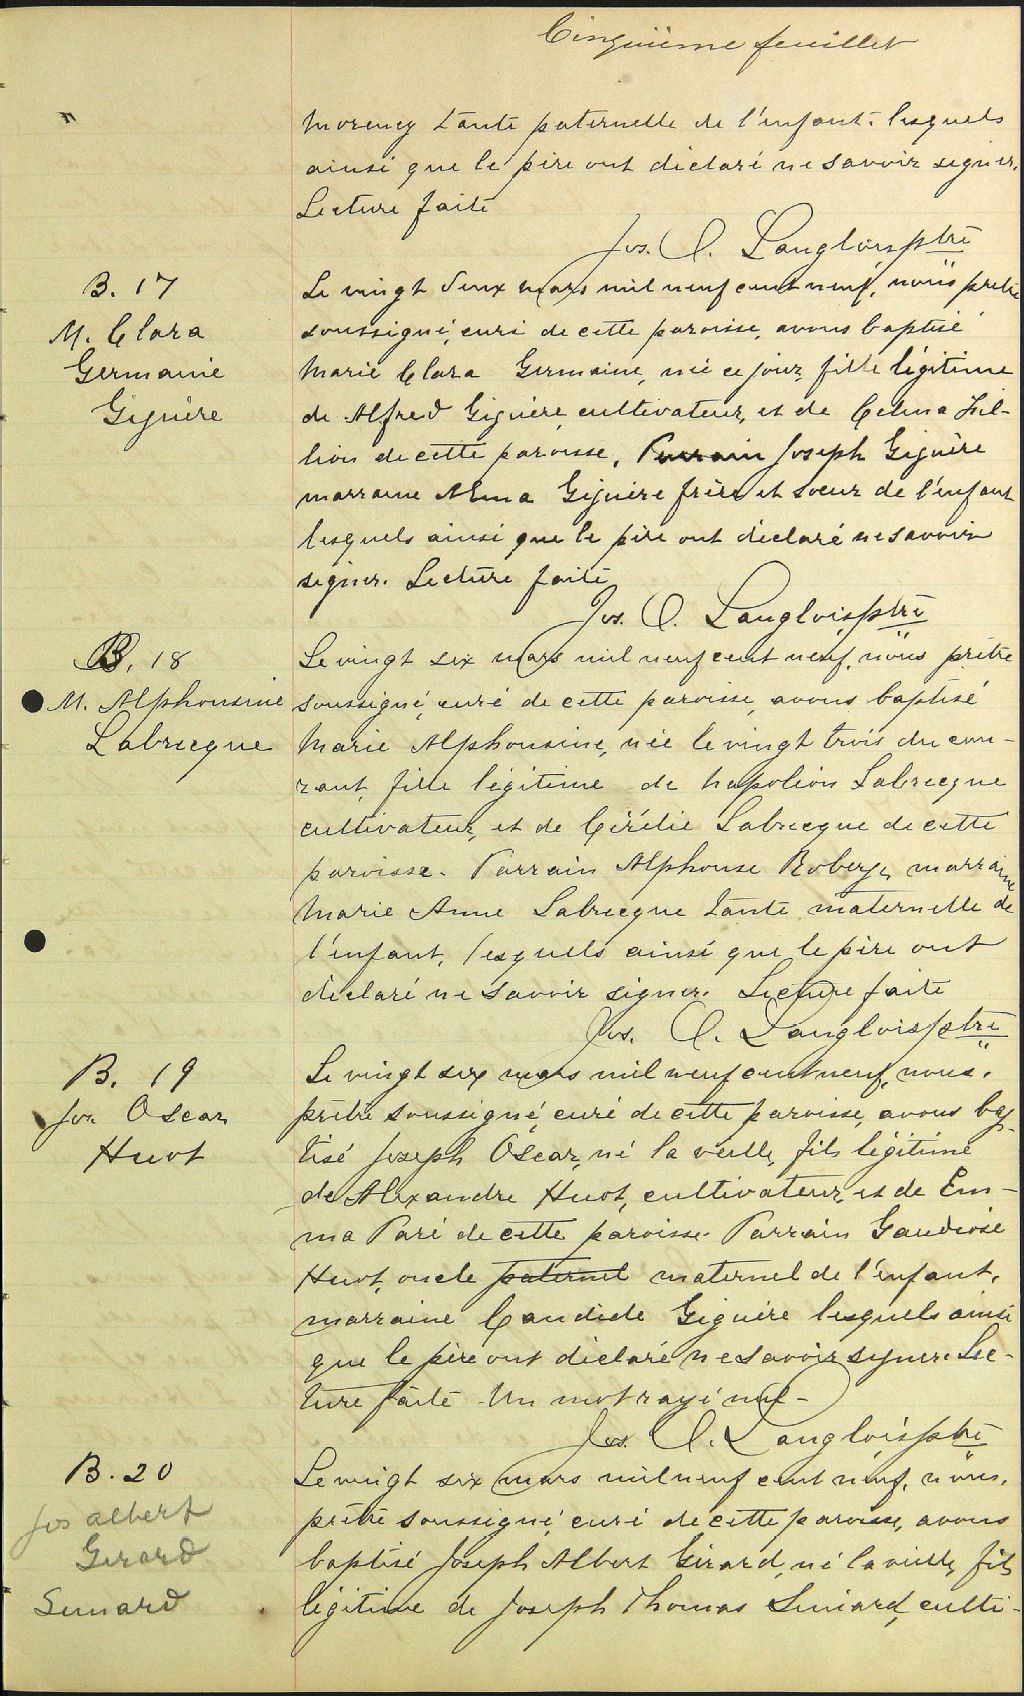 Cinquième feuillet
Morency tante paternelle de l'enfant. lesquels
ainsi que le père ont déclaré ne savoir signer.
Lecture faite
Jos. O. Langlois ptre
B. 17
M. Clara
Germaine
Giguère
Le vingt deux mars mil neuf cent neuf, nous prêtre
soussigné, curé de cette paroisse, avons baptisé
Marie Clara Germaine, née ce jour, fille légitime
de Alfred Giguère, cultivateur, et de Celina Fil-
lion de cette paroisse. Parrain Joseph Giguère
marraine Alma Giguère frère et soeur de l'enfant
lesquels ainsi que le père ont déclaré ne savoir
signer. Lecture faite
Jos. O. Langlois ptre
B. 18
M. Alphonsine
Labrecque
Le vingt six mars mil neuf cent neuf, nous prêtre
soussigné, curé de cette paroisse, avons baptisé
Marie Alphonsine, née le vingt trois du cou-
rant, fille légitime de Napoléon Labrecque
cultivateur, et de Labrecque de cette
paroisse. Parrain Alphonse Roberge, marraine
Marie Anne Labrecque tante maternelle de
l'enfant, lesquels ainsi que le père ont
déclaré ne savoir signer. Lecture faite
Jos. O. Langlois ptre
B. 19
Jos Oscar
Huot
Le vingt six mars mil neuf cent neuf, nous,
prêtre soussigné, curé de cette paroisse, avons bap-
tisé Joseph Oscar, né la veille, fils légitime
de Alexandre Huot, cultivateur, et de Em-
ma Paré de cette paroisse. Parrain Gaudiose
Huot, oncle paternel maternel de l'enfant,
marraine Candide Giguère lesquels ainsi
que le père ont déclaré ne savoir signer. Lec-
ture faite. Un mot rayé nul-
Jos. O. Langlois ptre
B. 20
Jos Albert
Gerard
Simard
Le vingt six mars mil neuf cent neuf, nous,
prêtre soussigné, curé de cette paroisse, avons
baptisé Joseph Albert Gérard, né la veille, fils
légitime de Joseph Thomas Simard, culti-